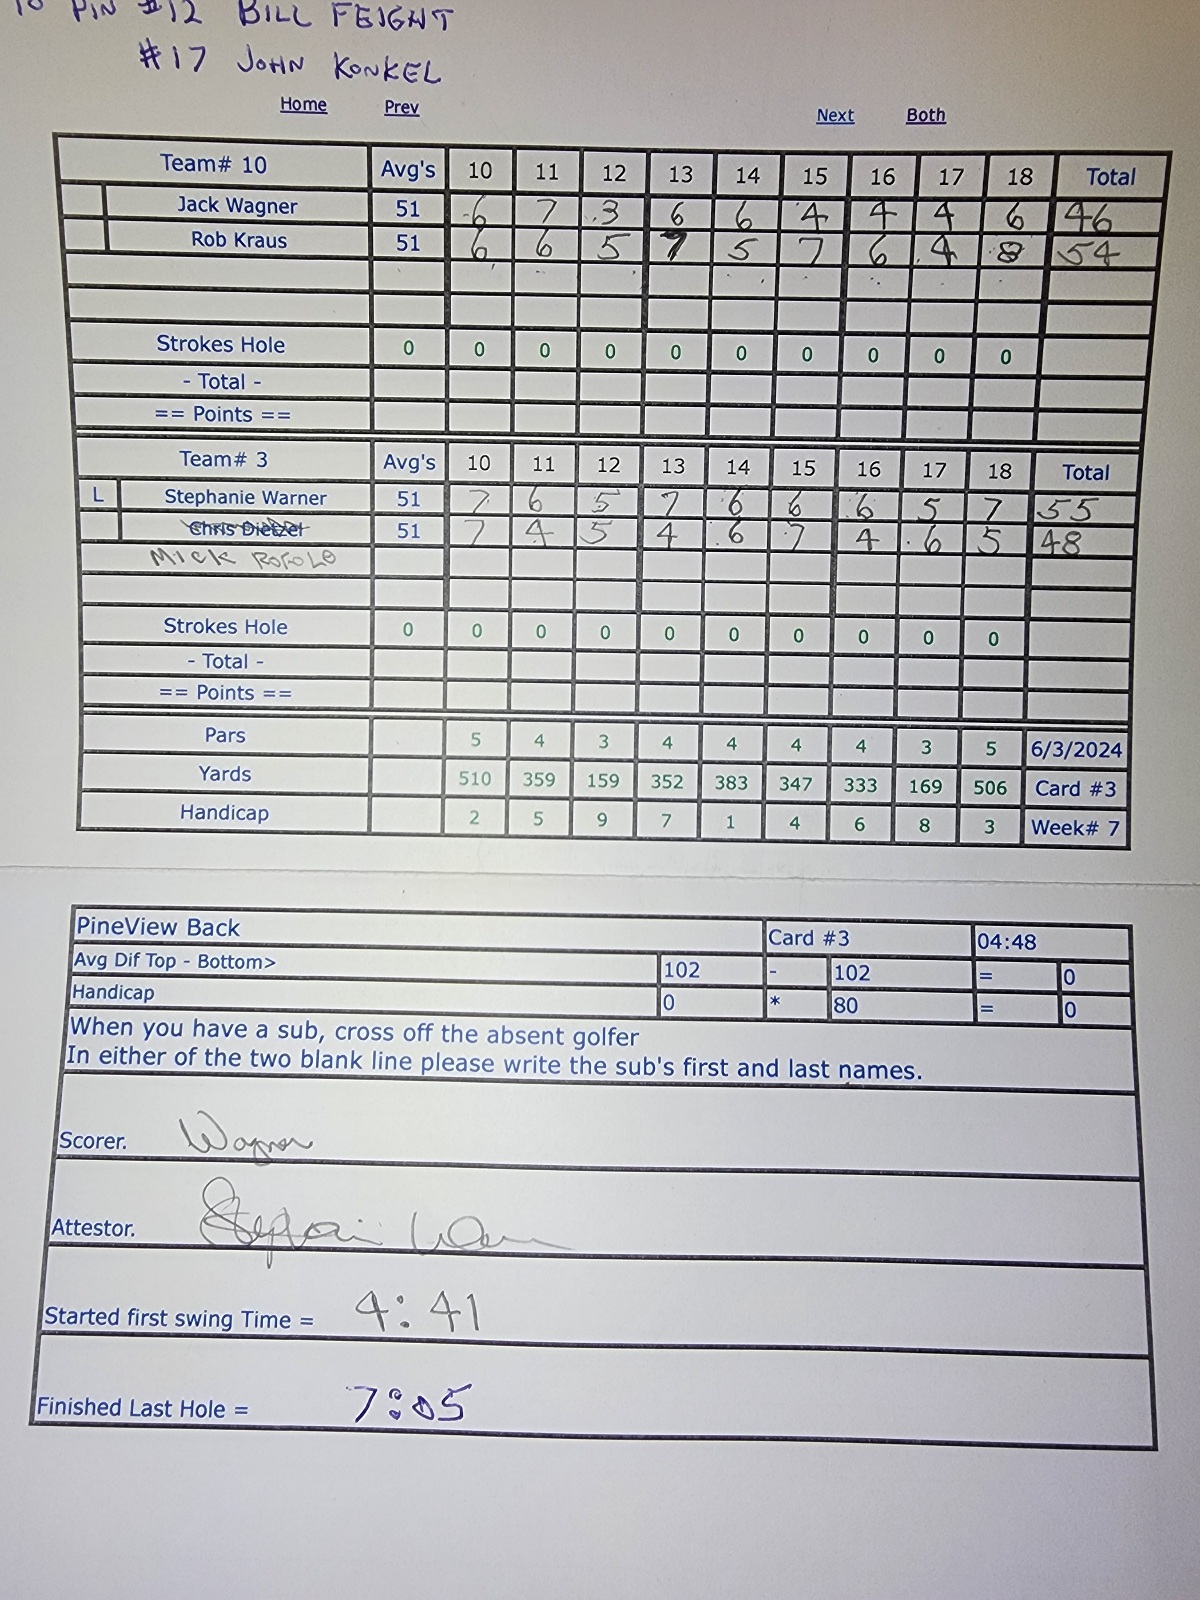 PIN #12 BILL FEIGHT
#17 JOHN KONKEL
Home Prev Next Both
Team# 10 Avg's 10 11 12 13 14 15 16 17 18 Total
Jack Wagner 51 6 7 3 6 6 4 4 4 6 46
Rob Kraus 51 6 6 5 7 5 7 6 4 8 54
Strokes Hole 0 0 0 0 0 0 0 0 0 0
- Total -
== Points ==
Team# 3 Avg's 10 11 12 13 14 15 16 17 18 Total
L Stephanie Warner 51 7 6 5 7 6 6 6 5 7 55
Chris Dietzel 51 7 4 5 4 6 7 4 6 5 48
MICK
Strokes Hole 0 0 0 0 0 0 0 0 0 0
- Total -
== Points ==
Pars 5 4 3 4 4 4 4 3 5 6/3/2024
Yards 510 359 159 352 383 347 333 169 506 Card #3
Handicap 2 5 9 7 1 4 6 8 3 Week# 7
PineView Back Card #3 04:48
Avg Dif Top - Bottom> 102 - 102 = 0
Handicap 0 * 80 = 0
When you have a sub, cross off the absent golfer
In either of the two blank line please write the sub's first and last names.
Scorer. Wagner
Attestor. Stephanie
Started first swing Time = 4:41
Finished Last Hole = 7:05